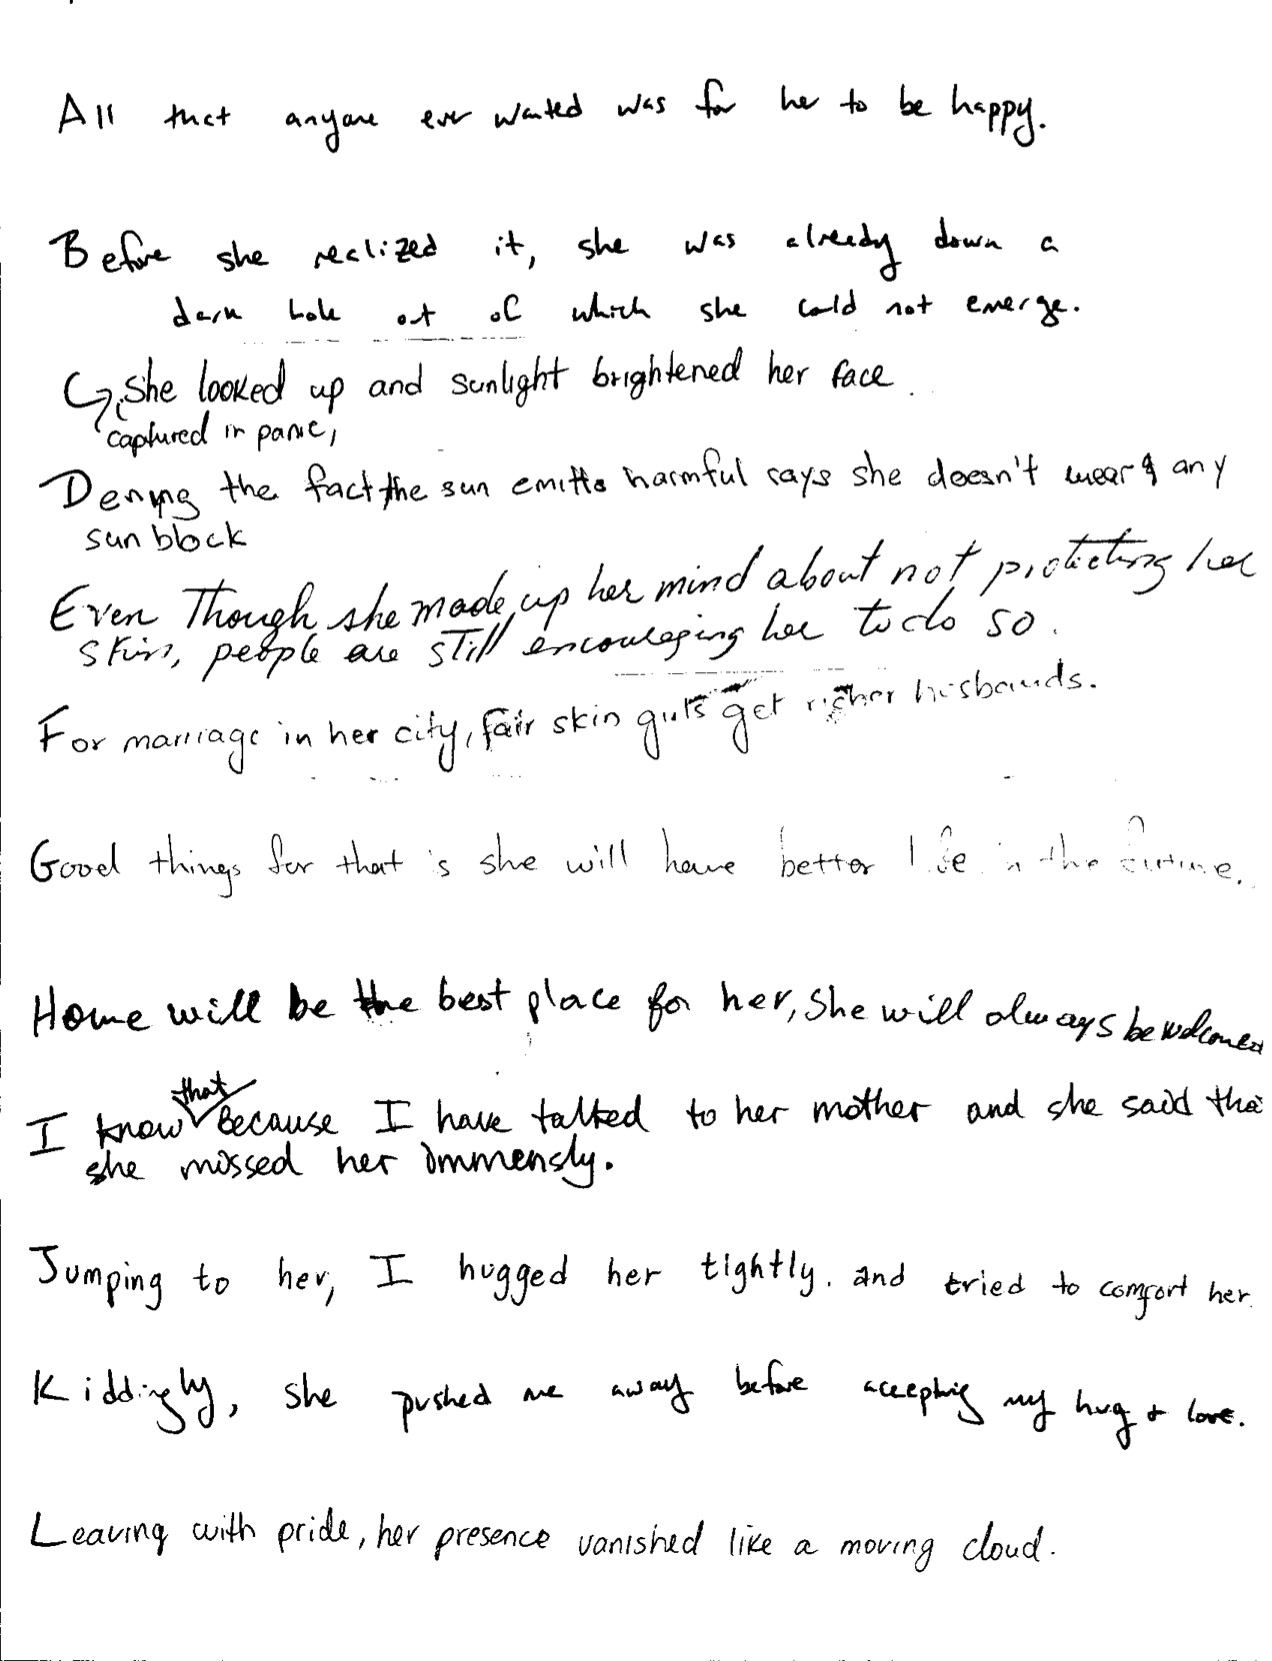 All that anyone ever wanted was for her to be happy.
Before she realized it, she was already down a
dark hole out of which she could not emerge.
↳ she looked up and sunlight brightened her face.
captured in panic,
Denying the fact the sun emitts harmful rays she doesn't wear any
sun block
Even Though she made up her mind about not protecting her
skin, people are still encouraging her to do so.
For marriage in her city, fair skin girls get richer husbands.
Good things for that is she will have better life in the future.
Home will be the best place for her, She will always be welcomed
that
I know because I have talked to her mother and she said tha
she missed her immensly.
Jumping to her, I hugged her tightly. and tried to comfort her.
Kiddingly, she pushed me away before accepting my hug + love.
Leaving with pride, her presence vanished like a moving cloud.